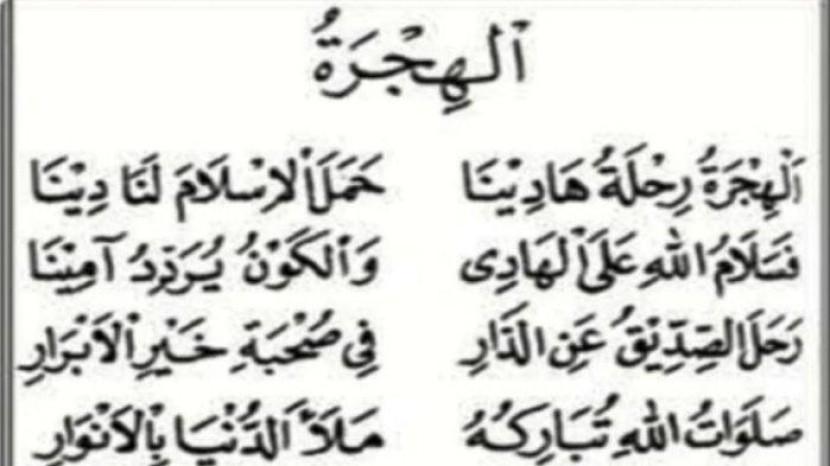 اَلْهِجْرَةُ
اَلْهِجْرَةُ رِحْلَةُ هَادِيْنَا حَمَلَ الْاِسْلَامَ لَنَا دِيْنَا
فَسَلَامُ اللهِ عَلَى الْهَادِى وَالْكَوْنُ يُرَدِّدُ آمِيْنَا
رَحَلَ الصِّدِّيْقُ عَنِ الدَّارِ فِي صُحْبَةِ خَيْرِ الْاَبْرَارِ
صَلَوَاتُ اللهِ تُبَارِكُهُ مَلَأَ الدُّنْيَا بِالْاَنْوَارِ